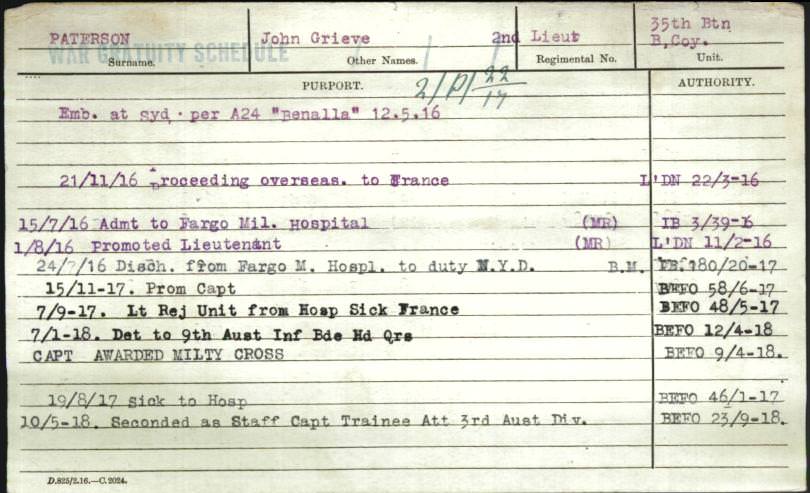 PATERSON John Grieve 2nd Lieut 35th Btn
WAR GRATUITY SCHEDULE B,Coy.
Surname. Other Names. Regimental No. Unit.
PURPORT. 2/P/22/17 AUTHORITY.
Emb. at syd. per A24 "Benalla" 12.5.16
21/11/16 Proceeding overseas. to France L'DN 22/3-16
15/7/16 Admt to Fargo Mil. Hospital (MR) IB 3/39-16
1/8/16 Promoted Lieutenant (MR) L'DN 11/2-16
24/7/16 Disch. from Fargo M. Hospl. to duty N.Y.D. B.M. FB.180/20-17
15/11-17. Prom Capt BEFO 58/6-17
7/9-17. Lt Rej Unit from Hosp Sick France BEFO 48/5-17
7/1-18. Det to 9th Aust Inf Bde Hd Qrs BEFO 12/4-18
CAPT AWARDED MILTY CROSS BEFO 9/4-18.
19/8/17 Sick to Hosp BEFO 46/1-17
10/5-18. Seconded as Staff Capt Trainee Att 3rd Aust Div. BEFO 23/9-18.
D.825/2.16.—C.2024.